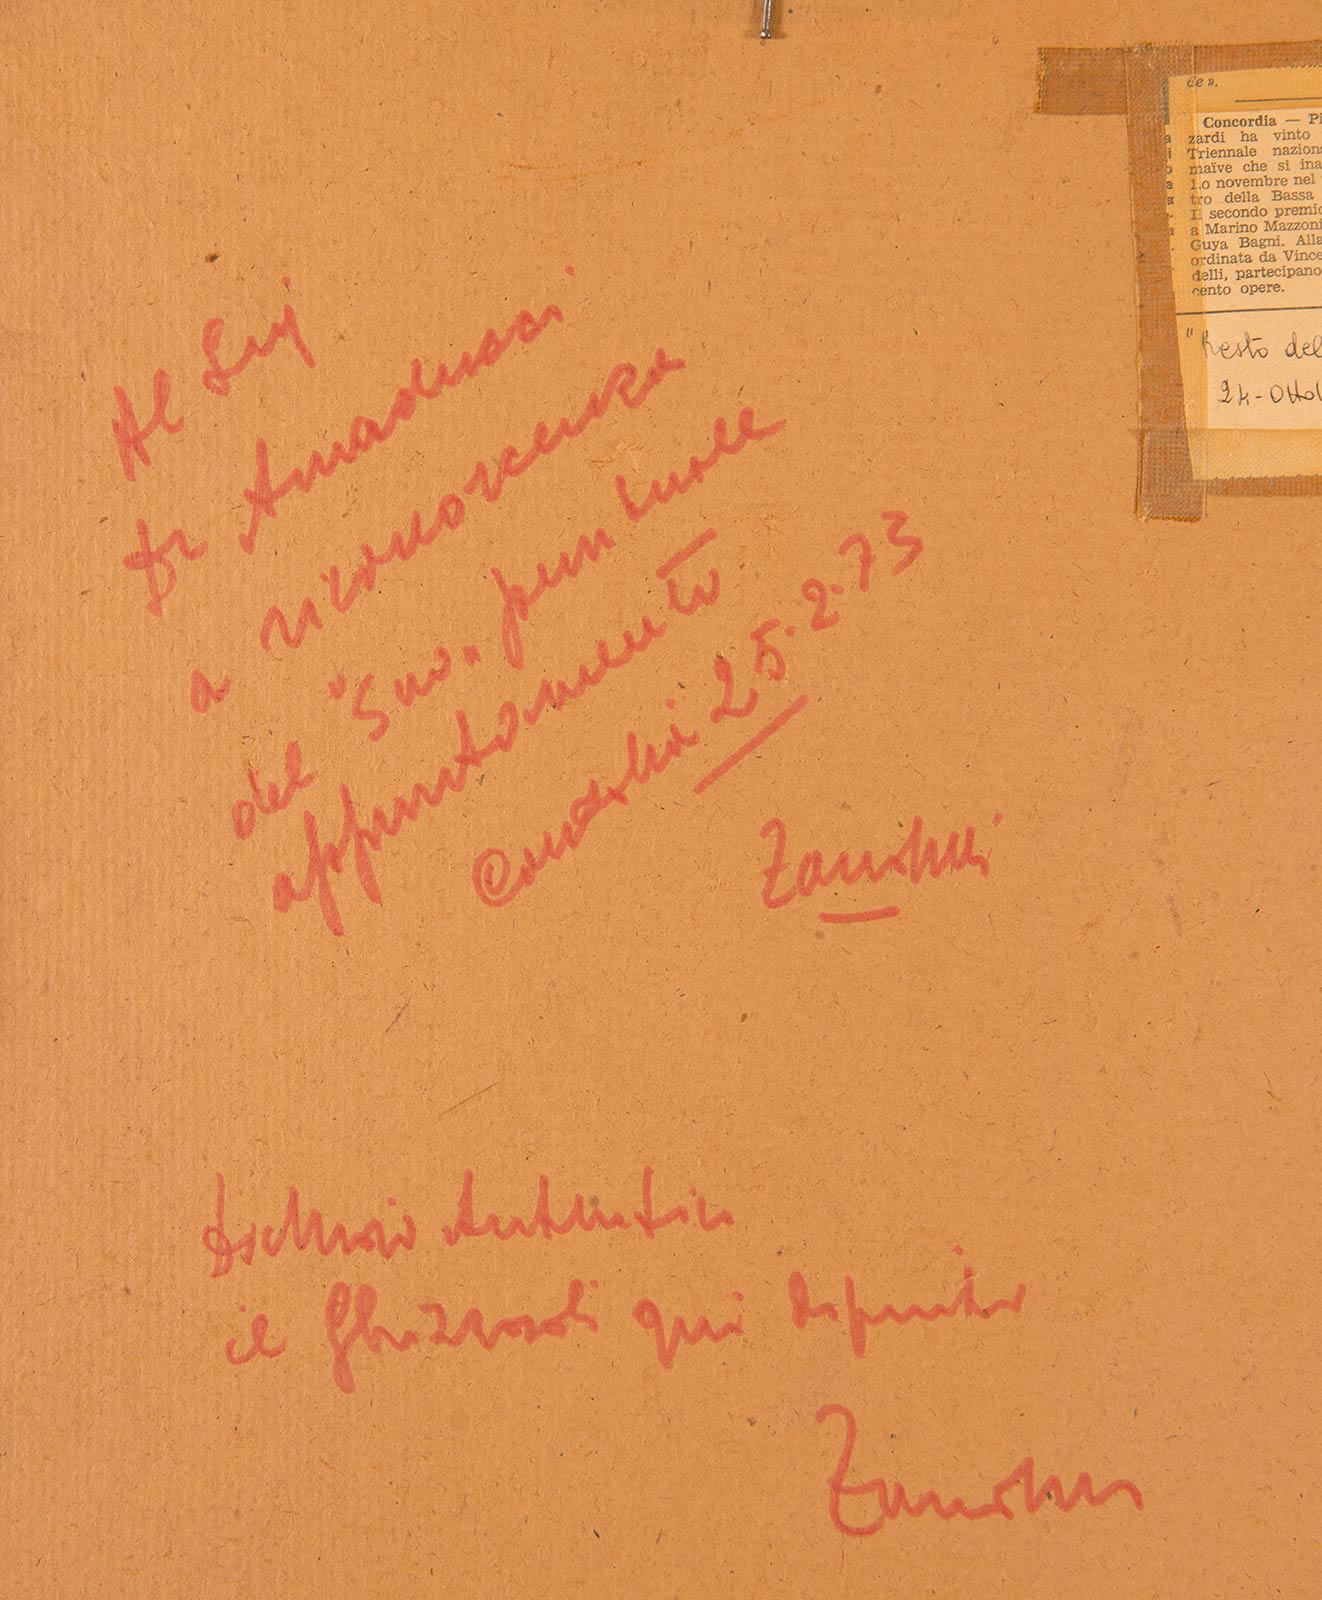 ce».
Concordia — Pi
zardi ha vinto
Triennale nazion
maïve che si ina
1.o novembre nel
tro della Bassa
Il secondo premio
a Marino Mazzoni
Guya Bagni. Alla
ordinata da Vince
delli, partecipano
cento opere.
"Resto del
24-Otto
Al Sig
Dr Amaducci
a riconoscenza
del "Suo" puntuale
appuntamento
25.2.73
Dichiaro Autentico
il Ghizzardi qui dipinto